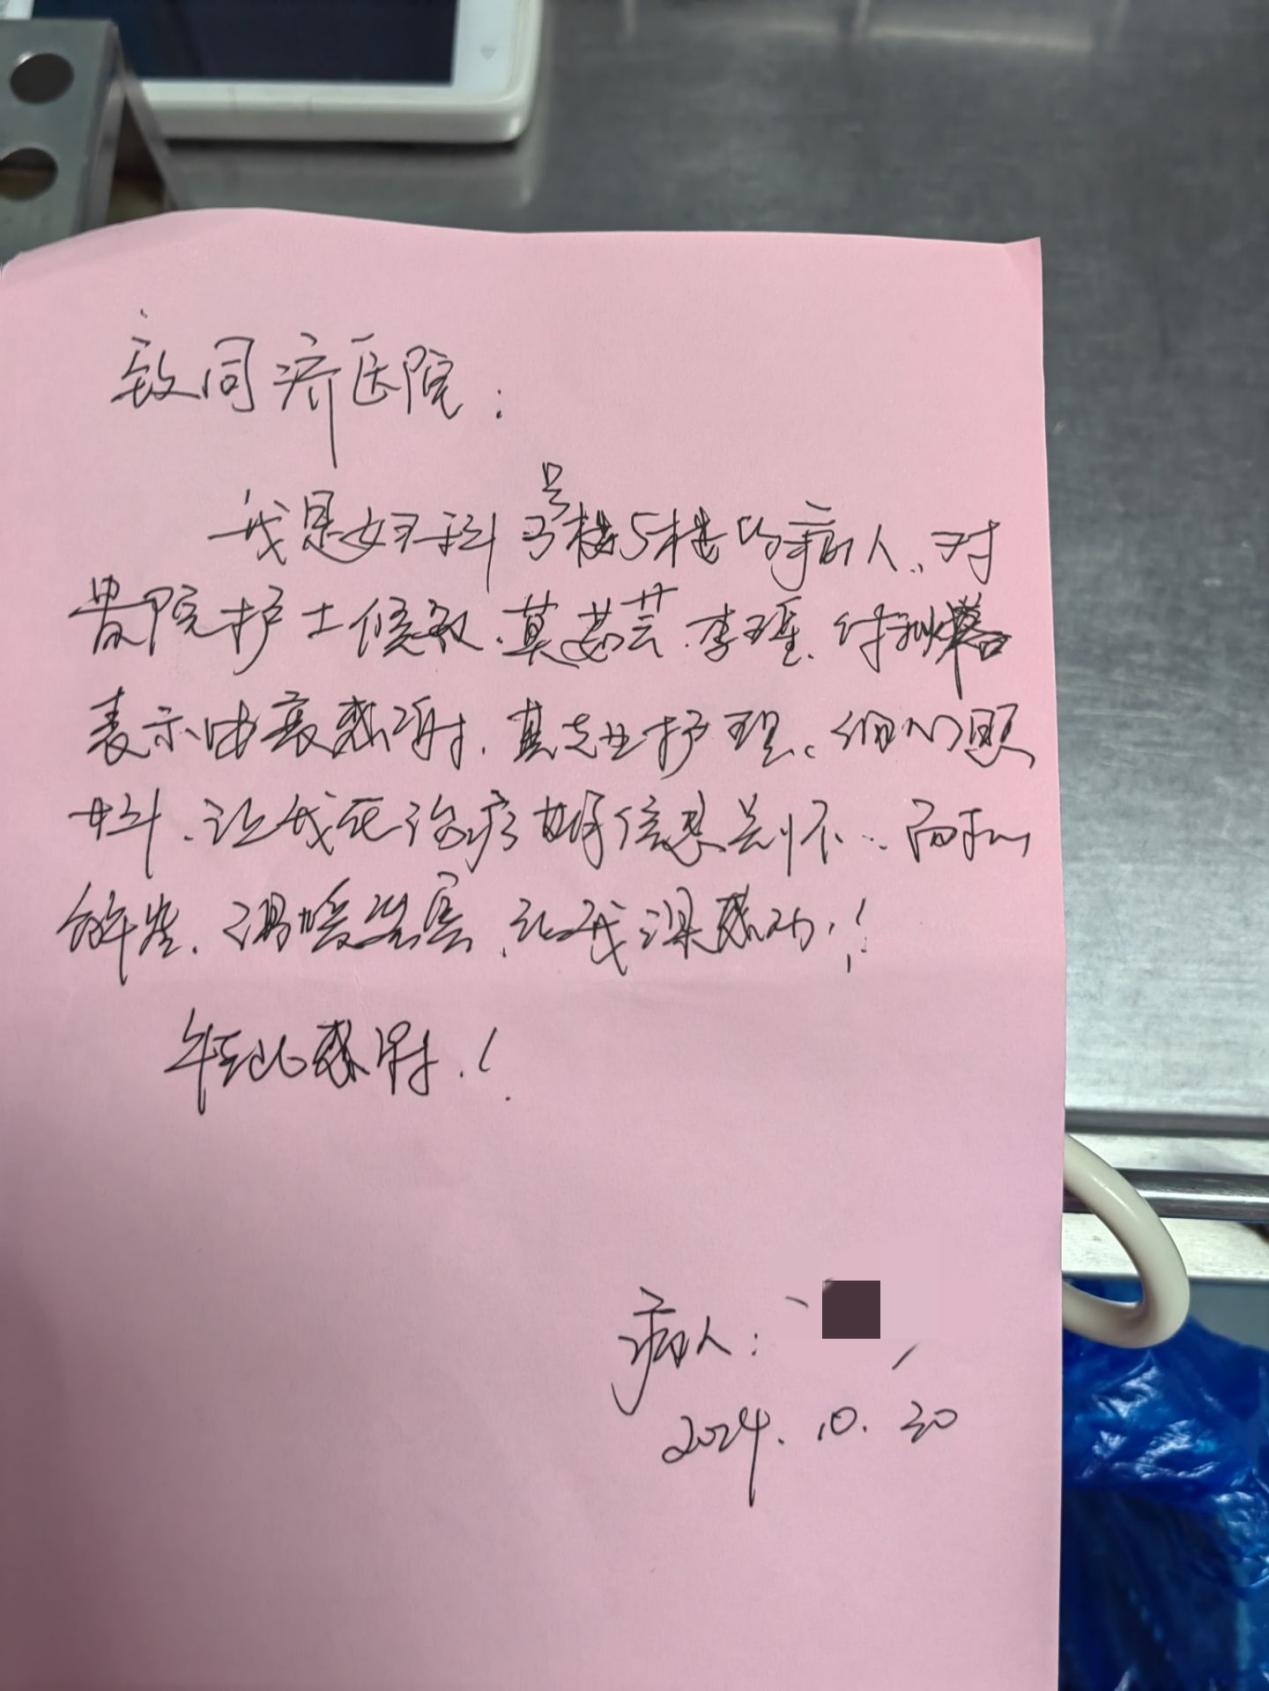 致同济医院：
我是妇科3号楼5楼的病人，对
贵院护士侯敏、莫茹芸、李瑾、
表示由衷感谢，其专业护理、细心照
料、让我在治疗期倍感关怀、而和
解答、温暖笑容、让我深感动！
在此感谢！
病人：
2024.10.20